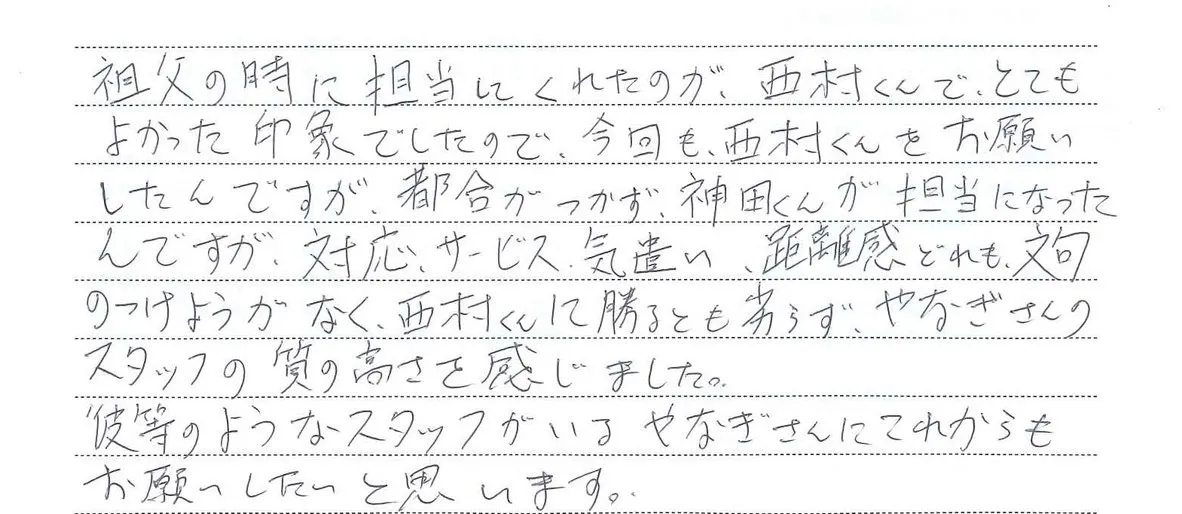 祖父の時に担当してくれたのが、西村くんで、とても
よかった印象でしたので、今回も、西村くんをお願い
したんですが、都合がつかず、神田くんが担当になった
んですが、対応、サービス、気遣い、距離感どれも、文句
のつけようがなく、西村くんに勝るとも劣らず、やなぎさんの
スタッフの質の高さを感じました。
彼等のようなスタッフがいるやなぎさんにこれからも
お願いしたいと思います。